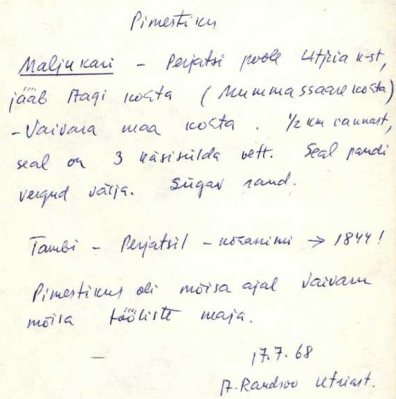 Pimestiku
Maljukari – Perjatsi poole Utria k-st,
jääb Aagi kohta (Mummassaare kohta)
– Vaivara maa kohta. ½ km rannast,
seal on 3 käsisülda vett. Seal pandi
vergud välja. Sügav rand.
Tambi – Perjatsil – kohanimi → 1844!
Pimestikus oli mõisa ajal Vaivara
mõisa tööliste maja.
17.7.68
A. Randsoo Utriast.